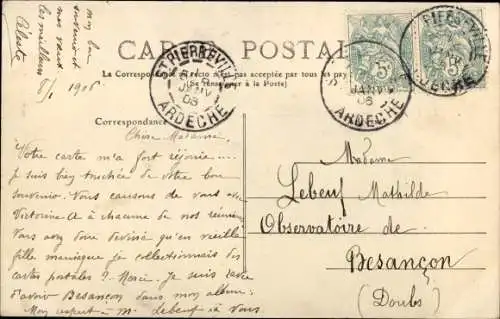 mon bon
souvenir et
mes vœux
les meilleurs
Céleste
8/1 1906
CARTE POSTALE
La Correspondance au recto n'est pas acceptée par tous les pays
(Se renseigner à la Poste)
ST PIERREVILLE
JANV
06
ARDÈCHE
JANV
06
ARDÈCHE
PIERREVILLE
ARDÈCHE
5c
Correspondance
Chère Madame,
Votre carte m'a fort réjouie...
je suis bien touchée de votre bon
souvenir. Nous causons de vous avec
Victorine à chacune de nos réunions
Vous avez donc deviné qu'en vieille
fille maniaque je collectionnais les
cartes postales? Merci. Je suis ravie
d'avoir Besançon dans mon album.
Mon respect à M. Lebeuf à vous
Madame
Lebeuf Mathilde
Observatoire de
Besançon
(Doubs)